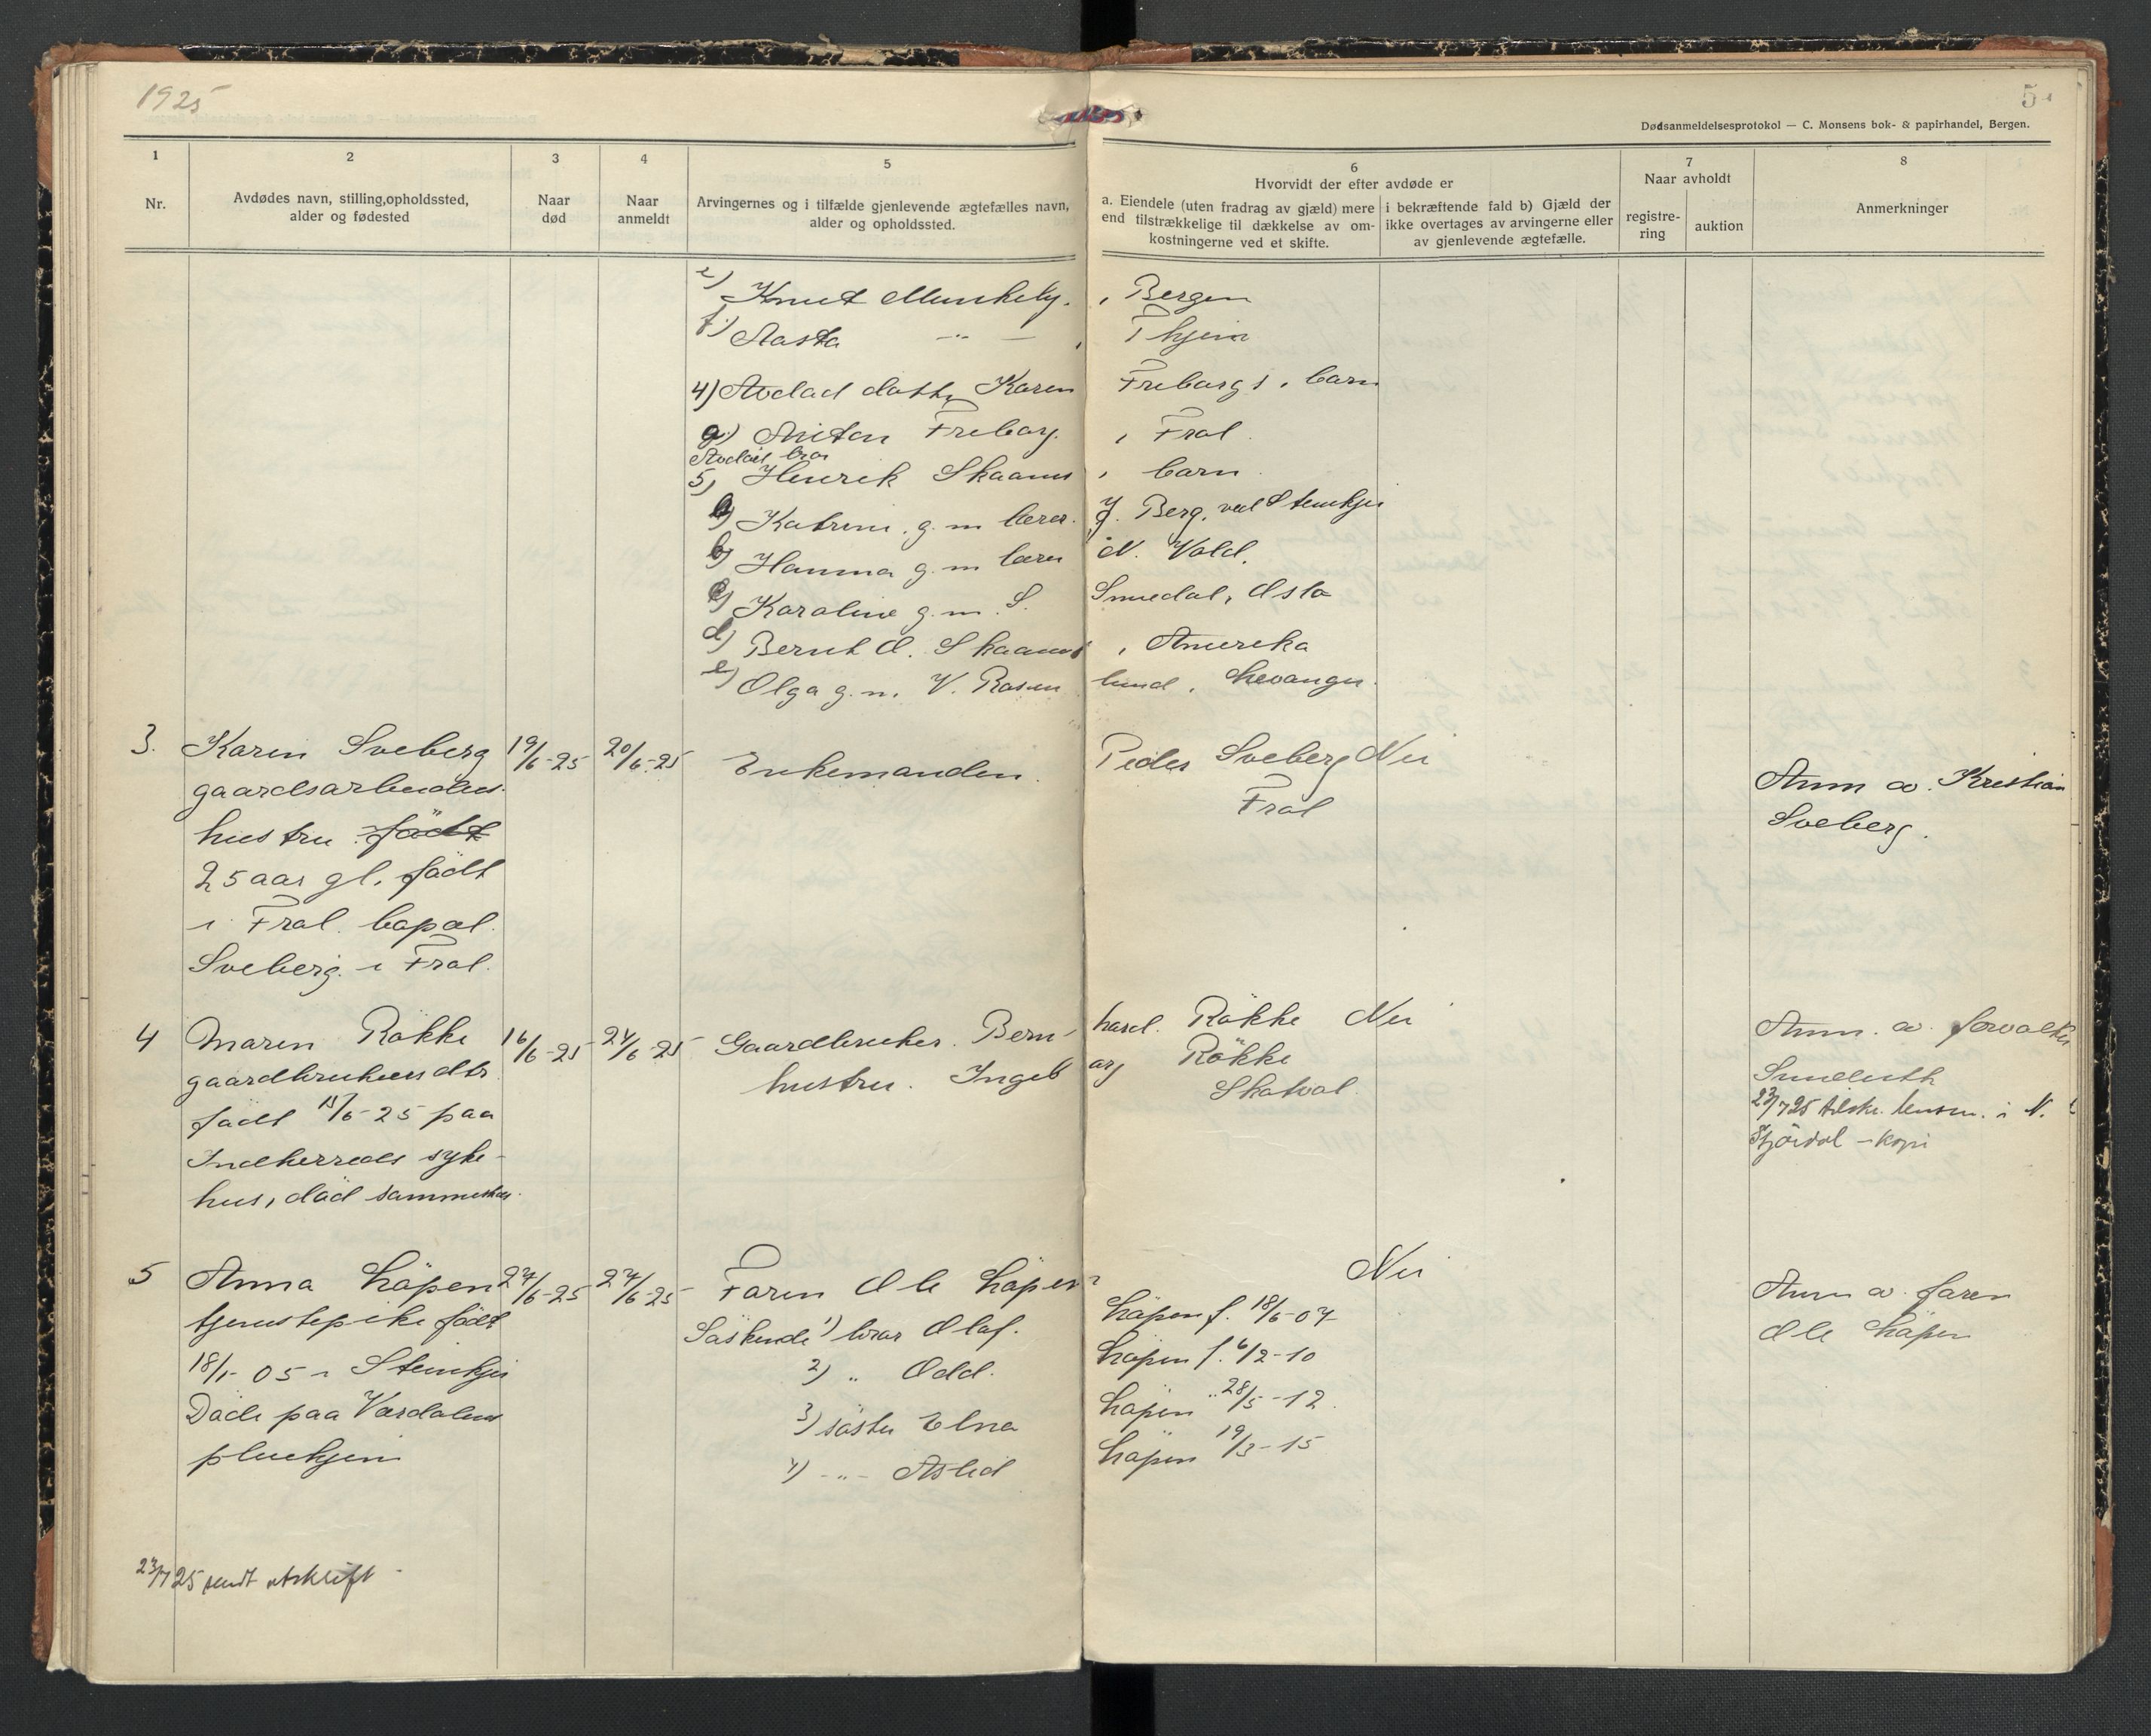 1925
5
Dødsanmeldelsesprotokol — C. Monsens bok- & papirhandel, Bergen.
1 2 3 4 5 6 7 8
Nr.
Avdødes navn, stilling,opholdssted,
alder og fødested
Naar
død
Naar
anmeldt
Arvingernes og i tilfælde gjenlevende ægtefælles navn,
alder og opholdssted.
Hvorvidt der efter avdøde er
a. Eiendele (uten fradrag av gjæld) mere
end tilstrækkelige til dækkelse av om-
kostningerne ved et skifte.
i bekræftende fald b) Gjæld der
ikke overtages av arvingerne eller
av gjenlevende ægtefælle.
Naar avholdt
registre-
ring
auktion
Anmerkninger
e) Knut Munkeby, Bergen
f) Aasta -"- , Thjem
4) Avdød datter Karen Freborgs, barn
a) Anton Freborg, Frol.
Avdøde bror
5) Henrik Skaanes, barn.
a) Katrine, g. m. lærer J. Berg, ved Stenkjer
b) Hanna g. m lærer N. Vold.
c) Karoline g. m. S. Snuedal, Oslo
d) Bernt O. Skaanes, Amerika
e) Olga g. m. V. Rosenlund, Levanger.
3. Karen Sveberg 19/6-25 20/6-25 Enkemanden. Peder Sveberg Nei
gaardsarbeiders
hustru født
25 aar gl. født
i Frol. bopæl.
Sveberg i Frol.
Frol
Anm av. Kristian
Sveberg.
4 Maren Røkke 16/6-25 24/6-25 Gaardbruker. Bernhard. Røkke Nei
gaardbrukerdtr. hustru. Ingeborg Røkke
født 15/6-25 paa Skatval
Indherreds syke-
hus, død sammesteds.
Anm. av. forvalter
Sundseth
23/7 25 tilskr. lensm. i N.
Stjørdal - kopi
5 Anna Løpen 24/6-25 27/6-25 Faren Ole Løpen Nei
tjenestepike født Søskende 1) bror Olaf. Løpen f. 18/6-07
18/1-05 i Stenkjer 2) " Odd. Løpen f. 6/2-10
Døde paa Værdalens 3) søster Elna Løpen " 28/5-12.
pleiehjem 4) -"- Astrid Løpen 19/3-15
Anm av. faren
Ole Løpen
23/7 25 sendt utskrift